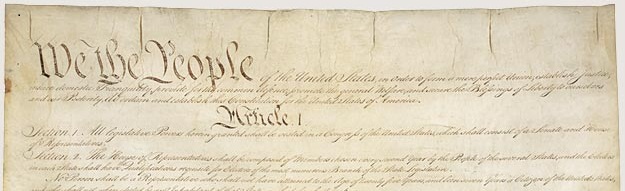 We the People of the United States, in Order to form a more perfect Union, establish Justice,
insure domestic Tranquility, provide for the common defence, promote the general Welfare, and secure the Blessings of Liberty to ourselves
and our Posterity, do ordain and establish this Constitution for the United States of America.
Article I.
Section. 1. All legislative Powers herein granted shall be vested in a Congress of the United States, which shall consist of a Senate and House
of Representatives.
Section. 2. The House of Representatives shall be composed of Members chosen every second Year by the People of the several States, and the Electors
in each State shall have Qualifications requisite for Electors of the most numerous Branch of the State Legislature.
No Person shall be a Representative who shall not have attained to the Age of twenty five Years, and been seven Years a Citizen of the United States,